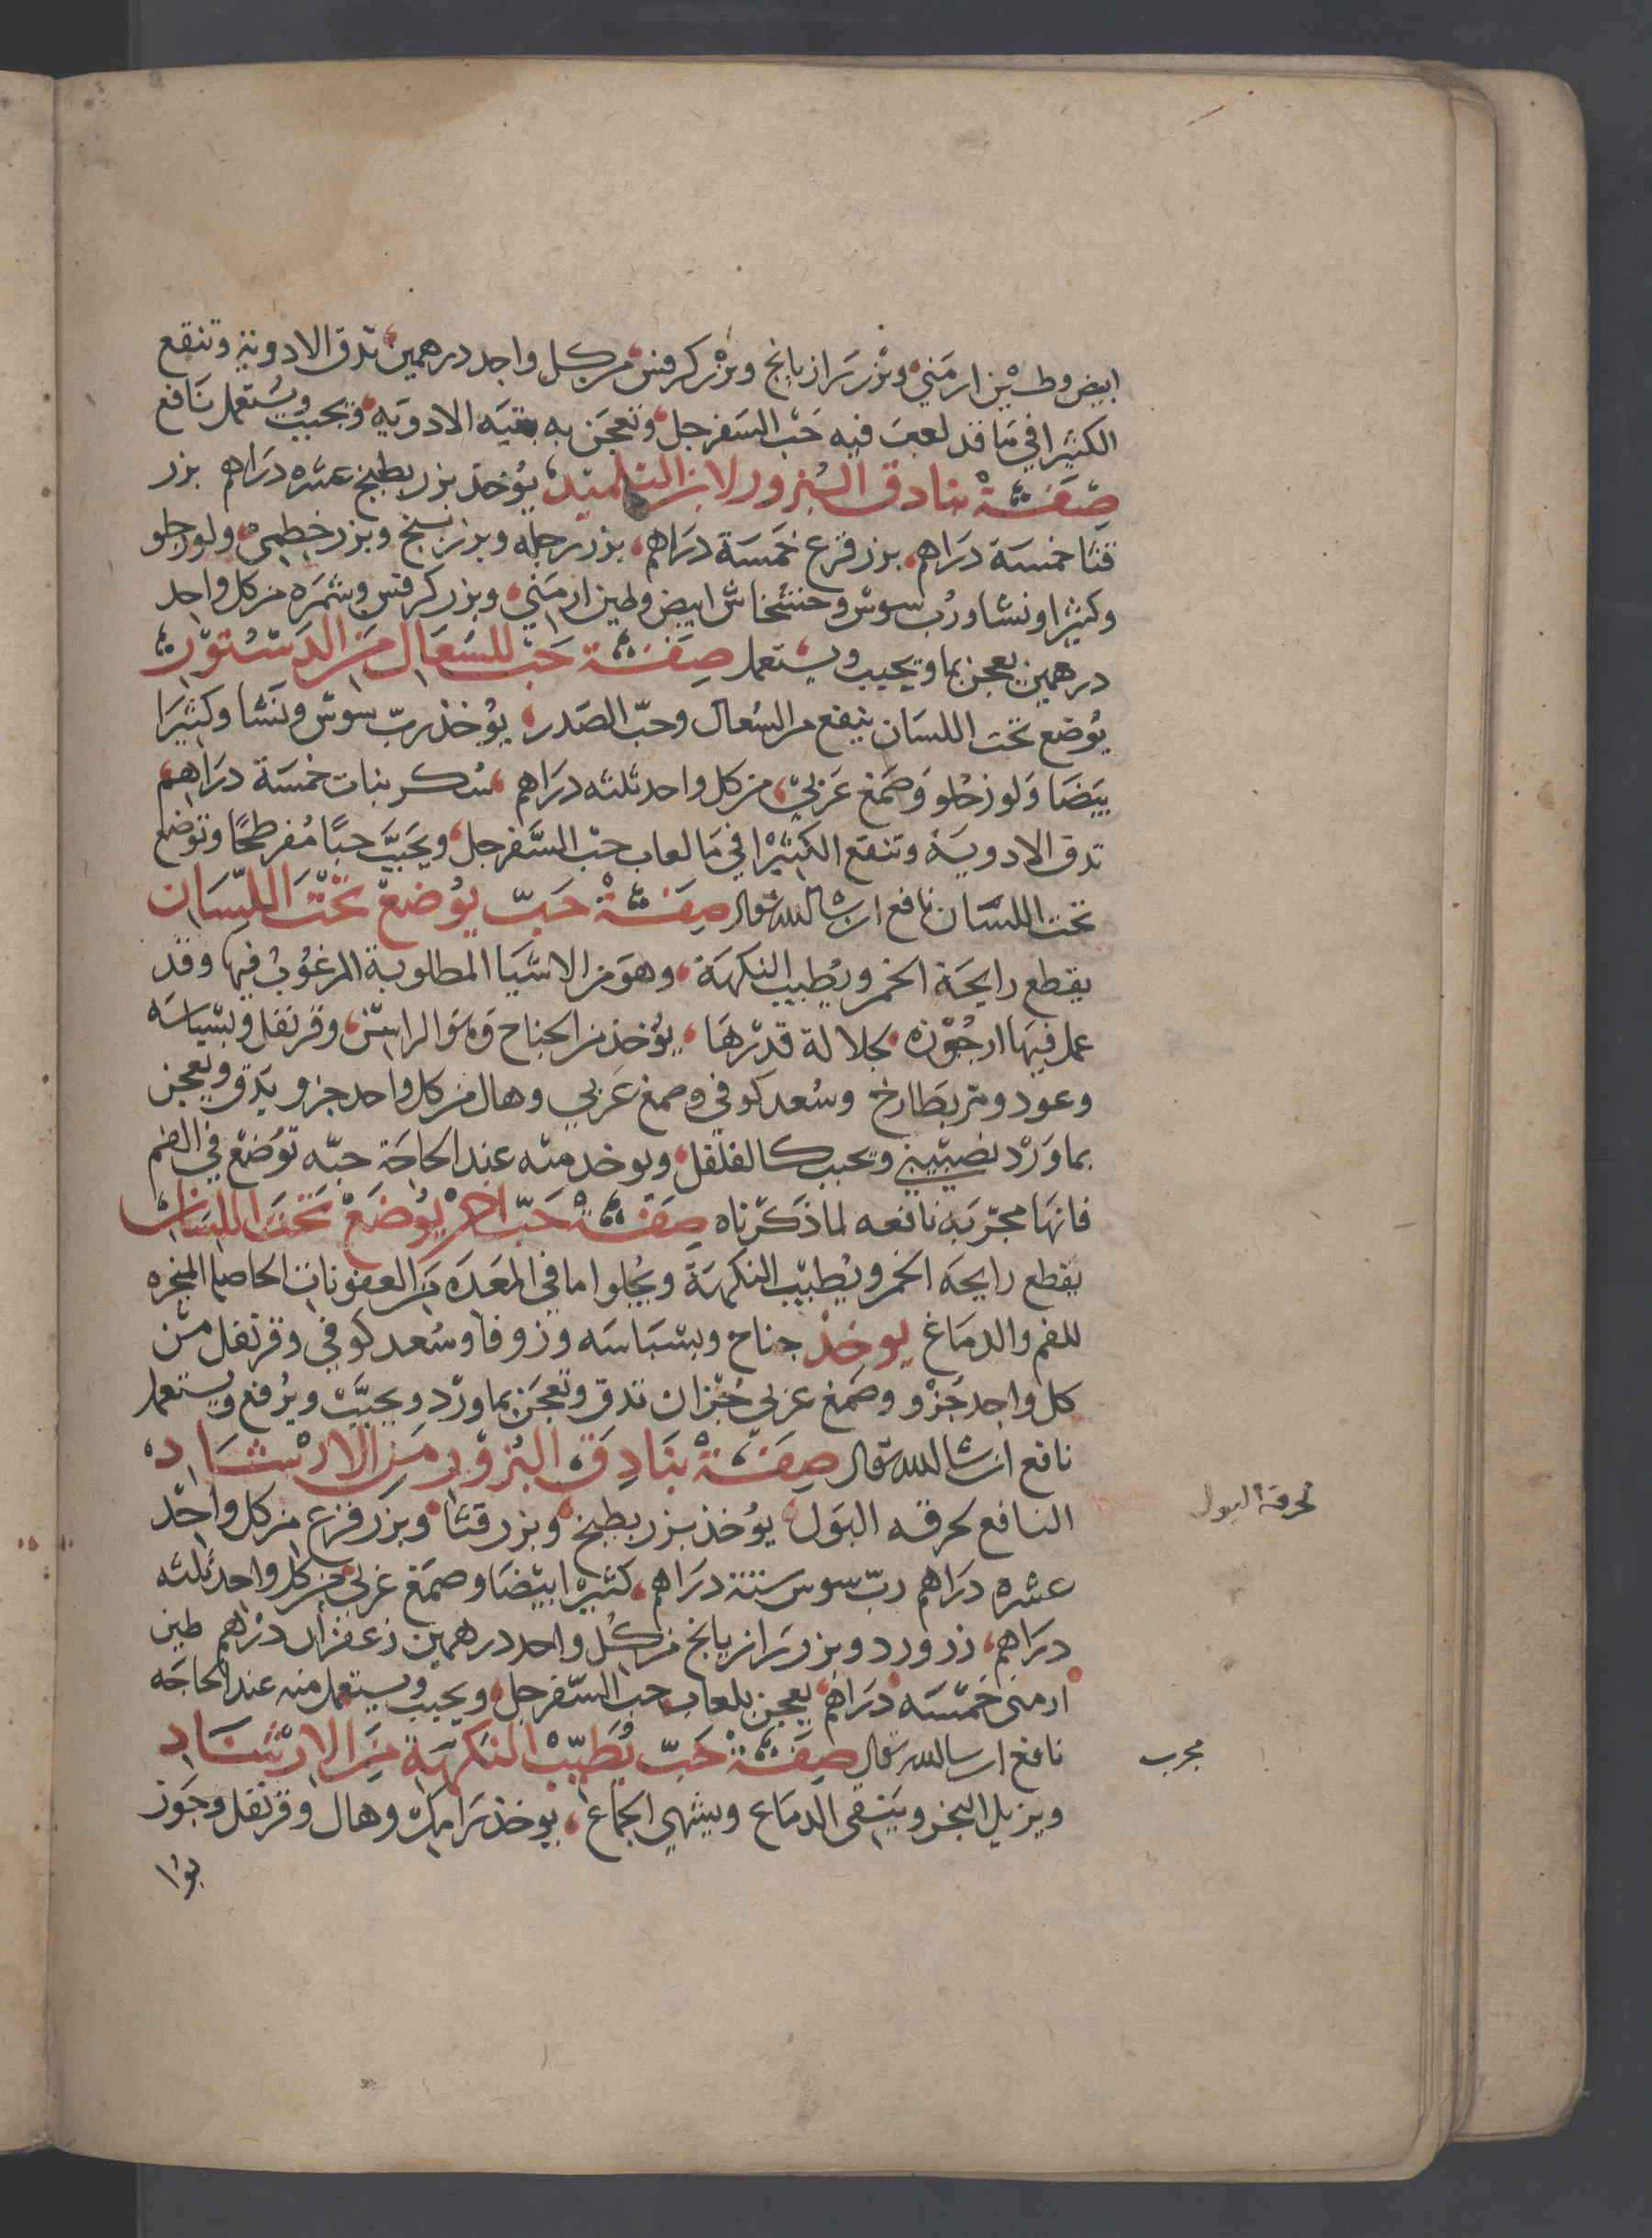 ابيض وطين ارمني وبزر رازيانج وبزر كرفس من كل واحد درهمين تدق الادوية وتنقع
الكثيرا في ما قد لعب فيه حب السفرجل وتعجن به بقيه الادويه وتحبب ويستعمل نافع
صفة بنادق البزور لابن التلميذ يؤخذ بزر بطيخ عشره دراهم بزر
قثا خمسة دراهم بزر قرع خمسة دراهم بزر رجله وبزر بنج وبزر خطمي ولوز حلو
وكثيرا ونشا ورب سوس وخشخاش ابيض وطين ارمني وبزر كرفس وشمره من كل واحد
درهمين يعجن بما ويحبب ويستعمل صفة حب للسعال من الدستور
يوضع تحت اللسان ينفع من السعال وحب الصدر يؤخذ رب سوس ونشا وكثيرا
بيضا ولوز حلو وصمغ عربي من كل واحد ثلثه دراهم سكر بنات خمسة دراهم
تدق الادوية وتنقع الكثيرا في ما لعاب حب السفرجل ويحبب حبا مفرطحا وتوضع
تحت اللسان نافع ان شا الله تعالى صفة حب يوضع تحت اللسان
يقطع رايحة الخمر ويطيب النكهة وهو من الاشيا المطلوبة المرغوب فيها وقد
عمل فيها ارجوزه لجلالة قدرها يؤخذ من الجناح وهو الراسن وقرنفل وبسباسه
وعود ومر بطارخ وسعد كوفي وصمغ عربي وهال من كل واحد جزو يدق ويعجن
بماورد نصيبيني ويحبب كالفلفل ويوخذ منه عند الحاجة حبه توضع في الفم
فانها مجربه نافعه لما ذكرناه صفة حب اخر يوضع تحت اللسان
يقطع رايحه الخمر ويطيب النكهة ويجلوا ما في المعده من العفونات الحاصله المبخره
للفم والدماغ يوخذ جناح وبسباسه وزوفا وسعد كوفي وقرنفل من
كل واحد جزو وصمغ عربي جزان تدق وتعجن بماورد ويحبب ويرفع ويستعمل
نافع ان شا الله تعالى صفة بنادق البزور من الارشاد
النافع لحرقه البول يؤخذ بزر بطيخ وبزر قثا وبزر قرع من كل واحد
عشره دراهم رب سوس ستة دراهم كثيرا بيضا وصمغ عربي من كل واحد ثلثه
دراهم زر ورد وبزر رازيانج من كل واحد درهمين زعفران درهم طين
ارمنى خمسه دراهم يعجن بلعاب حب السفرجل ويحبب ويستعمل منه عند الحاجه
نافع ان شا الله تعالى صفة حب يطيب النكهة من الارشاد
ويزيل البخر وينقى الدماغ ويشهي الجماع يوخذ رامك وهال وقرنفل وجوز
بوا
لحرقة البول
مجرب